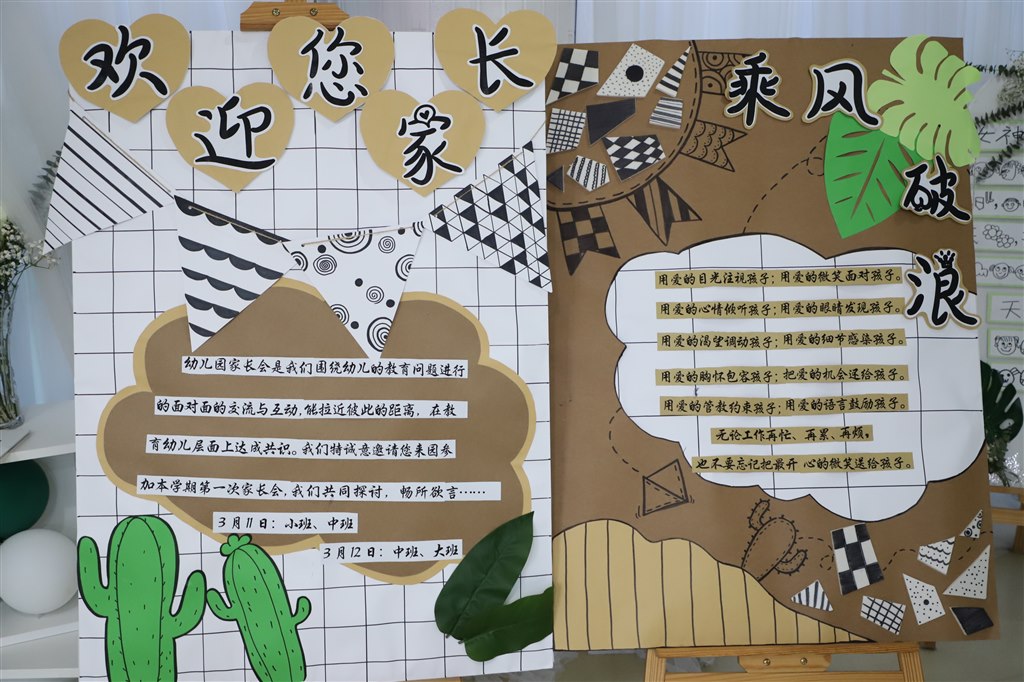 欢迎您家长
幼儿园家长会是我们围绕幼儿的教育问题进行
的面对面的交流与互动,能拉近彼此的距离,在教
育幼儿层面上达成共识。我们特诚意邀请您来园参
加本学期第一次家长会,我们共同探讨,畅所欲言……
3月11日:小班、中班
3月12日:中班、大班
乘风破浪
用爱的目光注视孩子;用爱的微笑面对孩子。
用爱的心情倾听孩子;用爱的眼睛发现孩子。
用爱的渴望调动孩子;用爱的细节感染孩子。
用爱的胸怀包容孩子;把爱的机会送给孩子。
用爱的管教约束孩子;用爱的语言鼓励孩子。
无论工作再忙、再累、再烦,
也不要忘记把最开心的微笑送给孩子。
女神
天